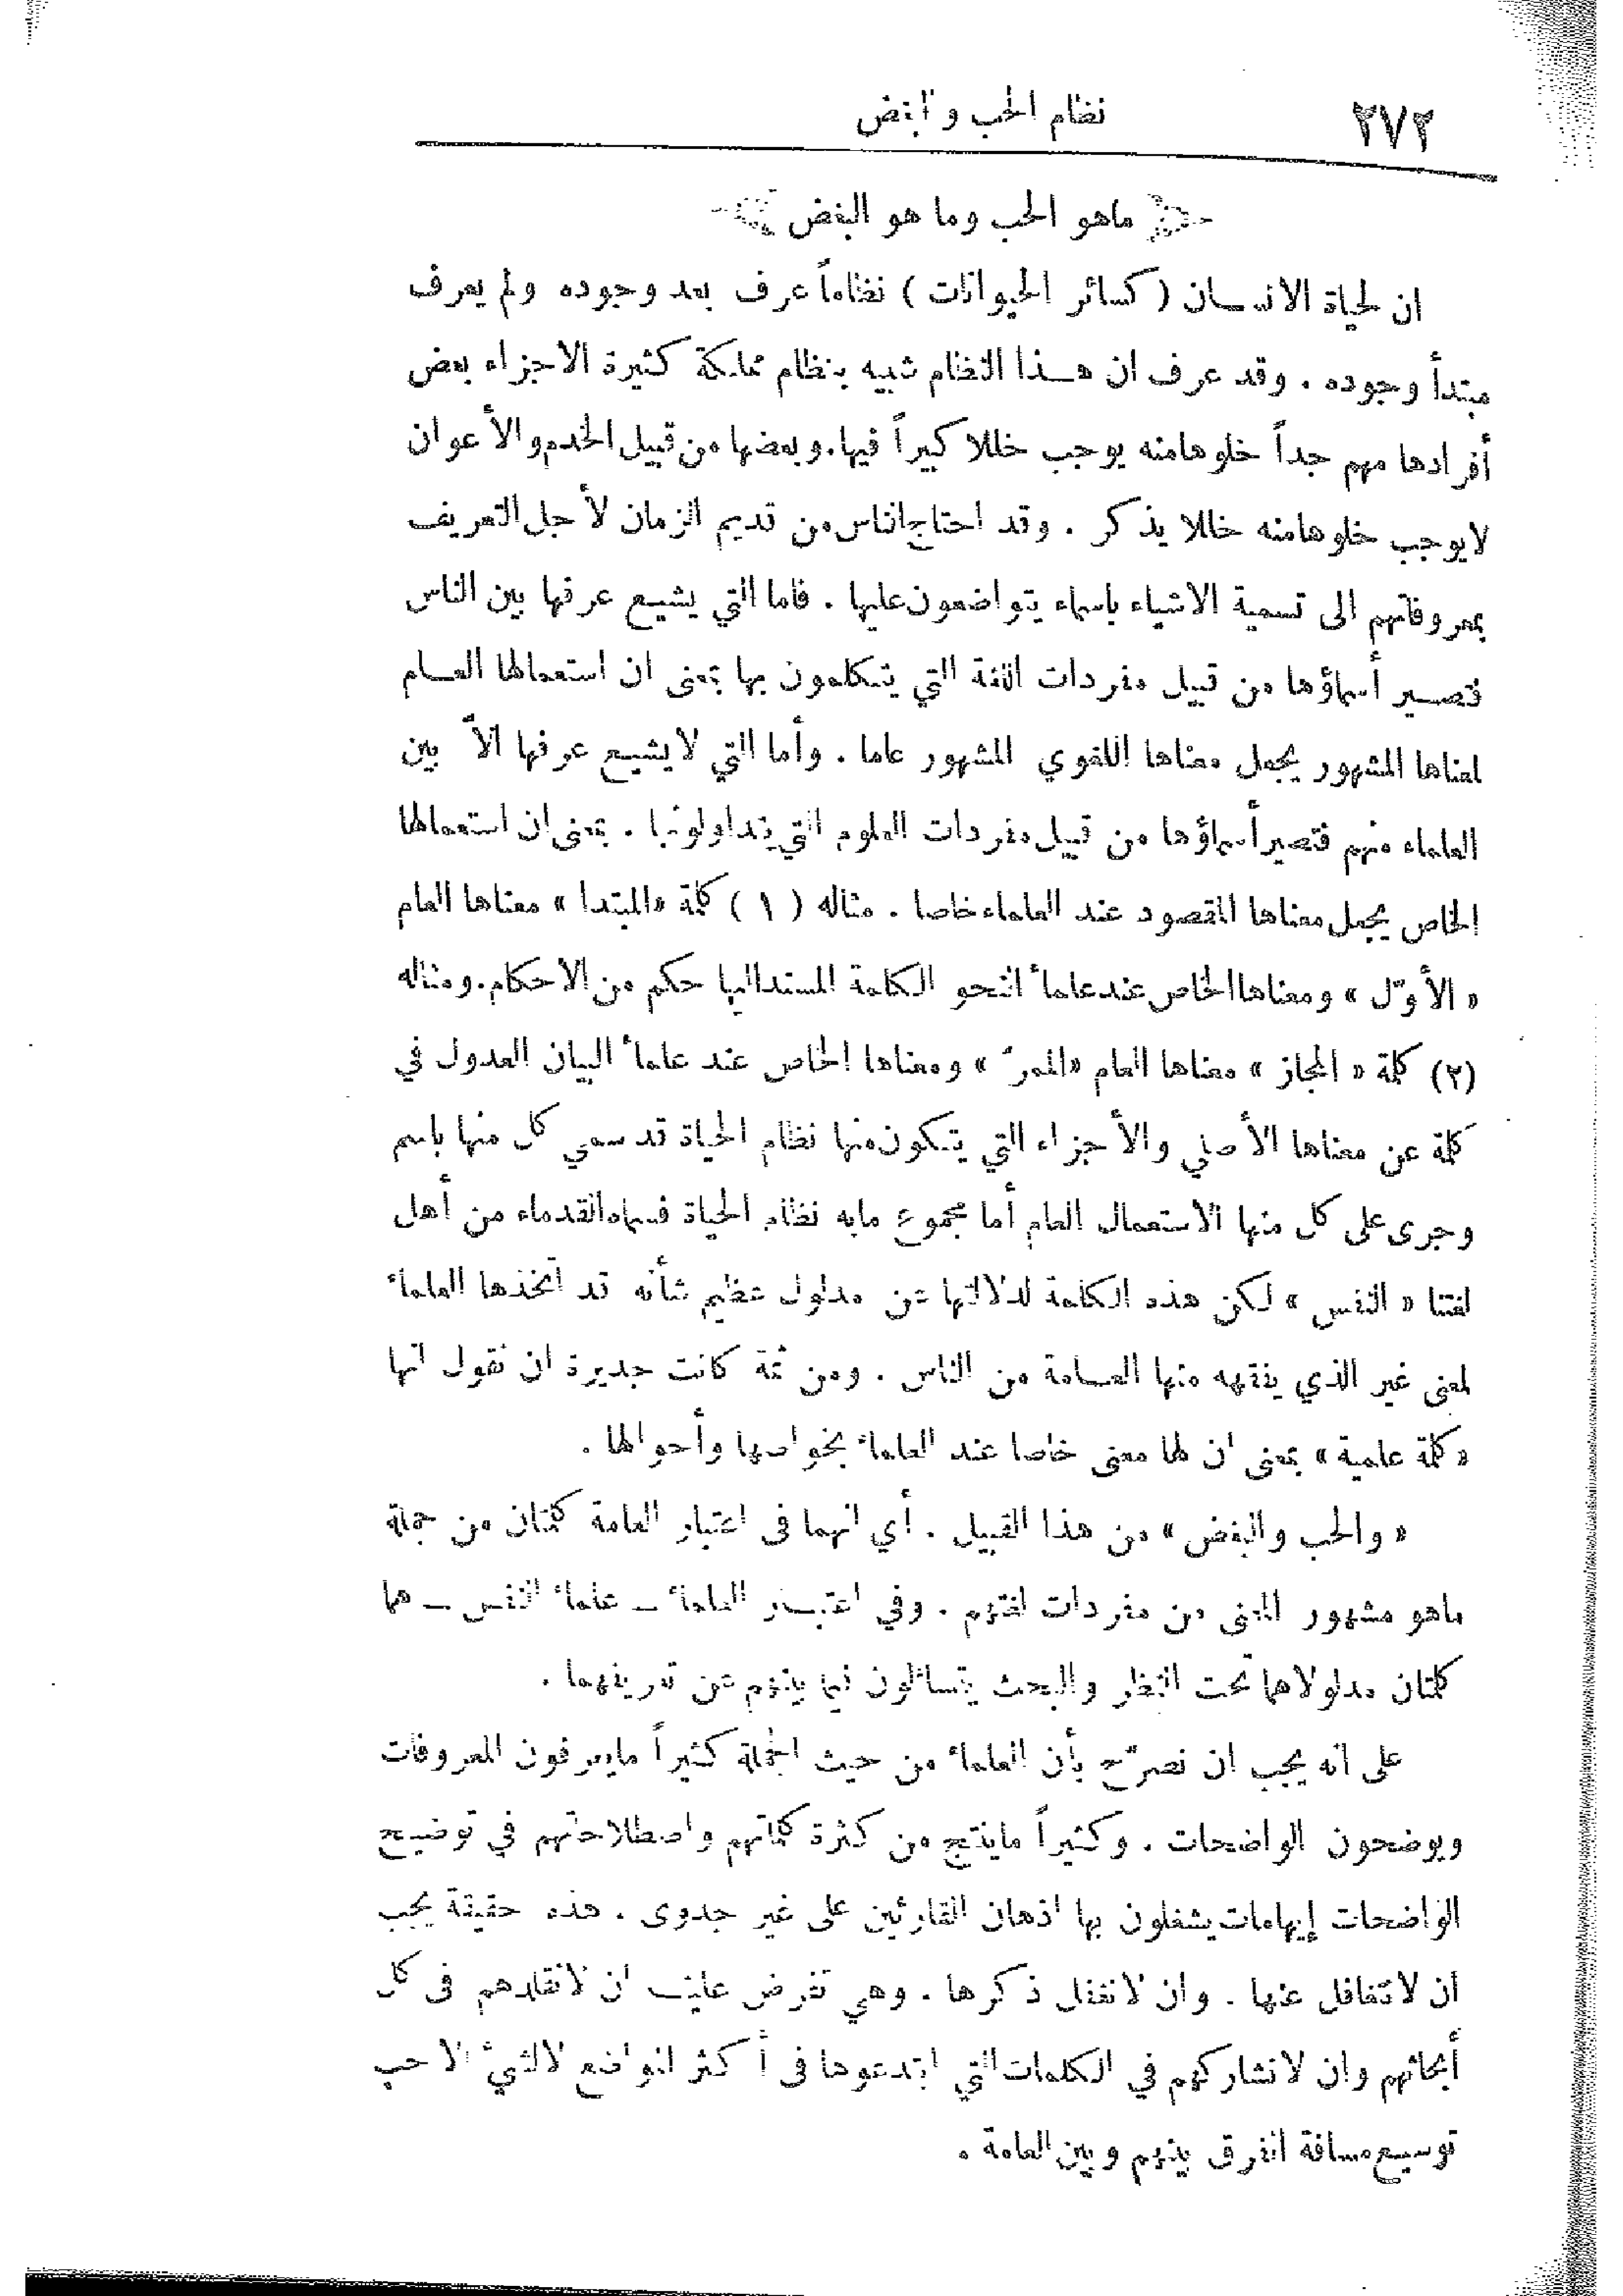 ٢٧٢
نظام الحب والبغض
ماهو الحب وما هو البغض
ان لحياة الانسان ( كسائر الحيوانات ) نظاماً عرف بعد وجوده ولم يعرف
مبتدأ وجوده . وقد عرف ان هذا النظام شبيه بنظام مملكة كثيرة الاجزاء بعض
أفرادها مهم جداً خلوها منه يوجب خللا كبيراً فيها. وبعضها من قبيل الخدم والأعوان
لا يوجب خلوها منه خللا يذكر . وقد احتاج الناس من قديم الزمان لأجل التعريف
بمعروفاتهم الى تسمية الاشياء باسماء يتواضعون عليها . فاما التي يشيع عرفها بين الناس
فتصير أسماؤها من قبيل مفردات اللغة التي يتكلمون بها بمعنى ان استعمالها العام
لمعناها المشهور يجعل معناها اللغوي المشهور عاما . وأما التي لا يشيع عرفها الاّ بين
العلماء منهم فتصير أسماؤها من قبيل مفردات العلوم التي يتداولونها . بمعنى ان استعمالها
الخاص يجعل معناها المقصود عند العلماء خاصا . مثاله ( ١ ) كلمة «المبتدا» معناها العام
« الأوّل » ومعناها الخاص عند علماء النحو الكلمة المسند اليها حكم من الاحكام. ومثاله
(٢) كلمة « المجاز » معناها العام «الممرّ » ومعناها الخاص عند علماء البيان العدول في
كلمة عن معناها الأصلي والأجزاء التي يتكون منها نظام الحياة قد سمي كل منها باسم
وجرى على كل منها الاستعمال العام أما مجموع مابه نظام الحياة فسماه القدماء من أهل
لغتنا « النفس » لكن هذه الكلمة لدلالتها عن مدلول عظيم شأنه قد اتخذها العلماء
لمعنى غير الذي يفقهه منها العامة من الناس . ومن ثمة كانت جديرة ان نقول انها
« كلمة علمية » بمعنى ان لها معنى خاصا عند العلماء بخواصها وأحوالها .
« والحب والبغض » من هذا القبيل . أي انهما في اعتبار العامة كلمتان من جملة
ماهو مشهور المعنى من مفردات لغتهم . وفي اعتبار العلماء – علماء النفس – هما
كلمتان مدلولاهما تحت النظر والبحث يتسائلون فيما بينهم عن تعريفهما .
على انه يجب ان نصرّح بأن العلماء من حيث الجملة كثيراً مايعرفون المعروفات
ويوضحون الواضحات . وكثيراً ماينتج من كثرة كلماتهم واصطلاحاتهم في توضيح
الواضحات إيهامات يشغلون بها اذهان القارئين على غير جدوى . هذه حقيقة يجب
أن لا نتغافل عنها . وان لا نغفل ذكرها . وهي تفرض علينا ان لا نقلدهم في كل
أبحاثهم وان لا نشاركهم في الكلمات التي ابتدعوها في أكثر المواضع لا لشيء الا حب
توسيع مسافة الفرق بينهم وبين العامة .